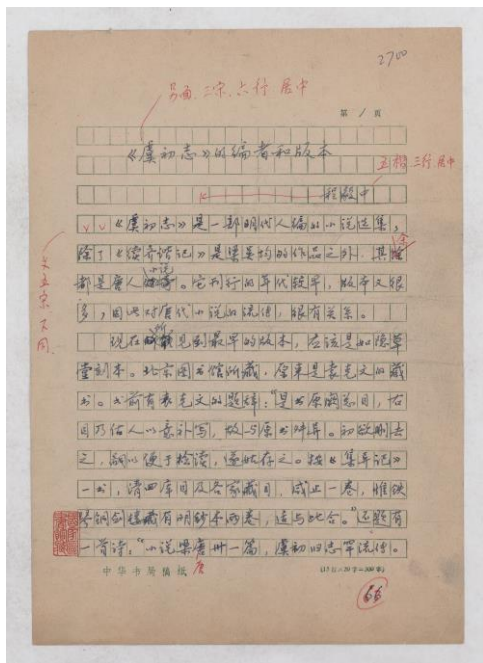 2700
二宋、六行 居中
第 1 页
《虞初志》的编者和版本
五楷 三行 居中
程毅中
《虞初志》是一部明代人编的小说选集，
除了《续齐谐记》是梁吴均的作品之外，其余
都是唐人小说。它刊行的年代较早，版本又很
多，因此对唐代小说的流传，很有关系。
文五宋 下同
现在所见到最早的版本，应该是如隐草
堂刻本。北京图书馆所藏，原来是袁克文的藏
书。书前有袁克文的题辞：“是书原阙总目，右
目乃估人以意补写，故与原书舛异。初欲删去
之，嗣以便于检读，遂姑存之。按《集异记》
一书，清四库目及各家藏目，咸止一卷，惟铁
琴铜剑楼藏有明钞本两卷，适与此合。”还题有
一首诗，“小说梁唐卅一篇，虞初旧志罕流传。
中华书局稿纸
(15行×20字=300字)